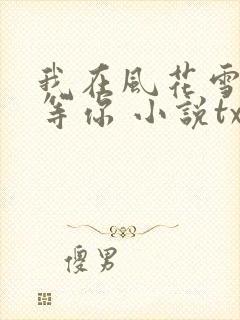 我在風花雪
等你 小說tx
傻男